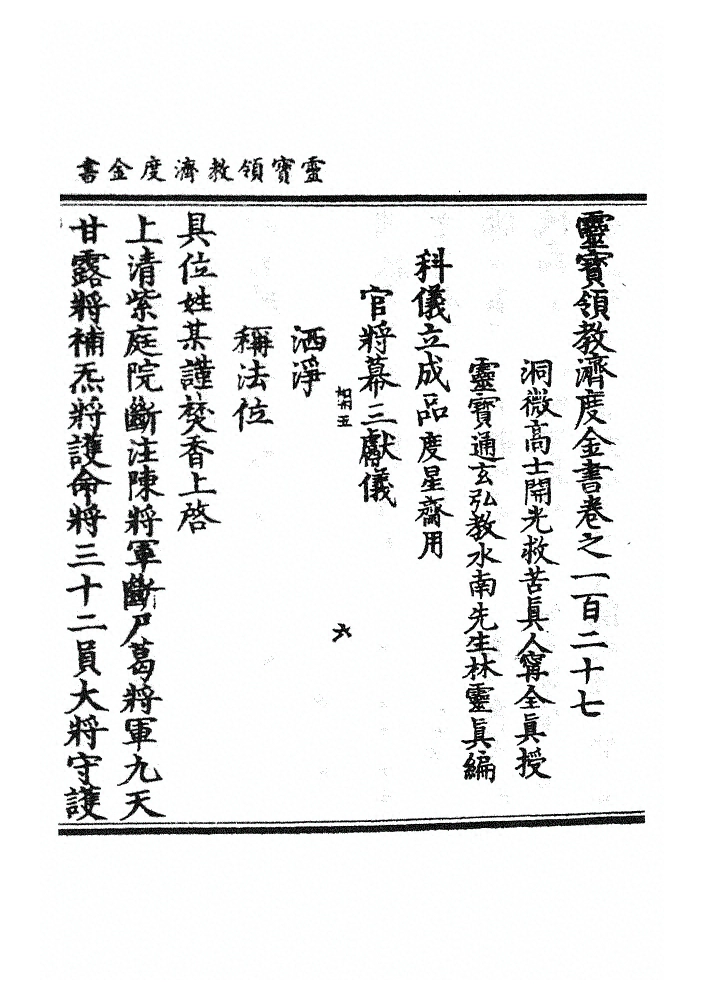 靈寶領教濟度金書
靈寶領教濟度金書卷之一百二十七
洞微高士開光救苦眞人寗全眞授
靈寶通玄弘教水南先生林靈眞編
科儀立成品度星齋用
官將幕三獻儀
六
洒淨
稱法位
具位姓某謹焚香上啓
上清紫庭院斷注陳將軍斷尸葛將軍九天
甘露將補炁將護命將三十二員大將守護